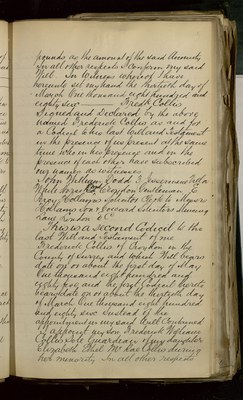 pounds as the amount of the said Annuity
In all other respects I confirm my said
Will In Witness whereof I have
hereunto set my hand the thirtieth day of
March One thousand eight hundred and
eighty seven Fredk Collier
Signed and Declared by the above
named Frederick Collier as and for
a Codicil to his last Will and Testament
in the presence of us present at the same
time who in his presence and in the
presence of each other have subscribed
our names as witnesses
John William Dodd
White Horse Croydon Gentleman
Solicitor Clerk to Messrs
Lane London E C
This is a second Codicil to the
last Will and Testament of me
Frederick Collier of Croydon in the
County of Surrey and which Will bears
date on or about the first day of May
One thousand eight hundred and
eighty five and the first Codicil hereto
bears date on or about the thirtieth day
of March One thousand eight hundred
and eighty seven Instead of the
appointment in my said Will contained
I appoint my son Frederick William
Collier sole Guardian of my daughter
Elizabeth Ethel Collier during
her minority In all other respects